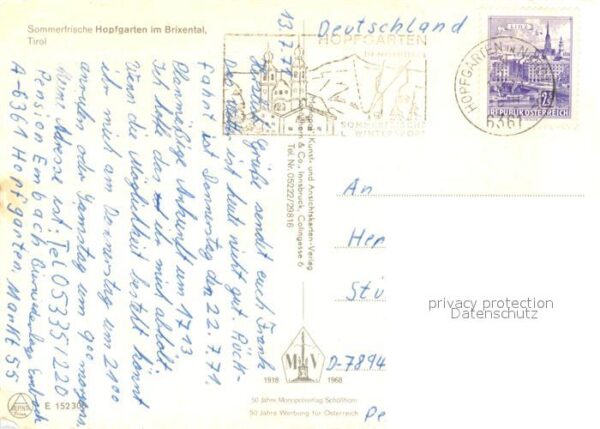 Sommerfrische Hopfgarten im Brixental,
Tirol
13.7.71.
Herzliche Grüße sendet euch Frank
Das Wetter ist heut nicht gut. Rück-
fahrt ist Donnerstag den 22.7.71.
Planmäßige Ankunft um 1713
Ich bitte das ihr mich abholt.
Wenn die Möglichkeit besteht könnt
ihr mich am Donnerstag um 2100
anrufen oder Samstag um 900 morgen,
Meine Adresse ist: Tel 05335/220
Pension Embach
A-6361 Hopfgarten, Markt 55
E 1523
Kunst- und Ansichtskarten-Verlag
& Co., Innsbruck, Colingasse 6
Tel. Nr. 05222/29816
1918 1968
50 Jahre Monopolverlag Schöllhorn
50 Jahre Werbung für Österreich
Deutschland
HOPFGARTEN
SOMMER
WINTERSPORT
HOPFGARTEN
6361
LINZ
2S
REPUBLIK ÖSTERREICH
An
Her
Stü
D-7894
Pe
privacy protection
Datenschutz